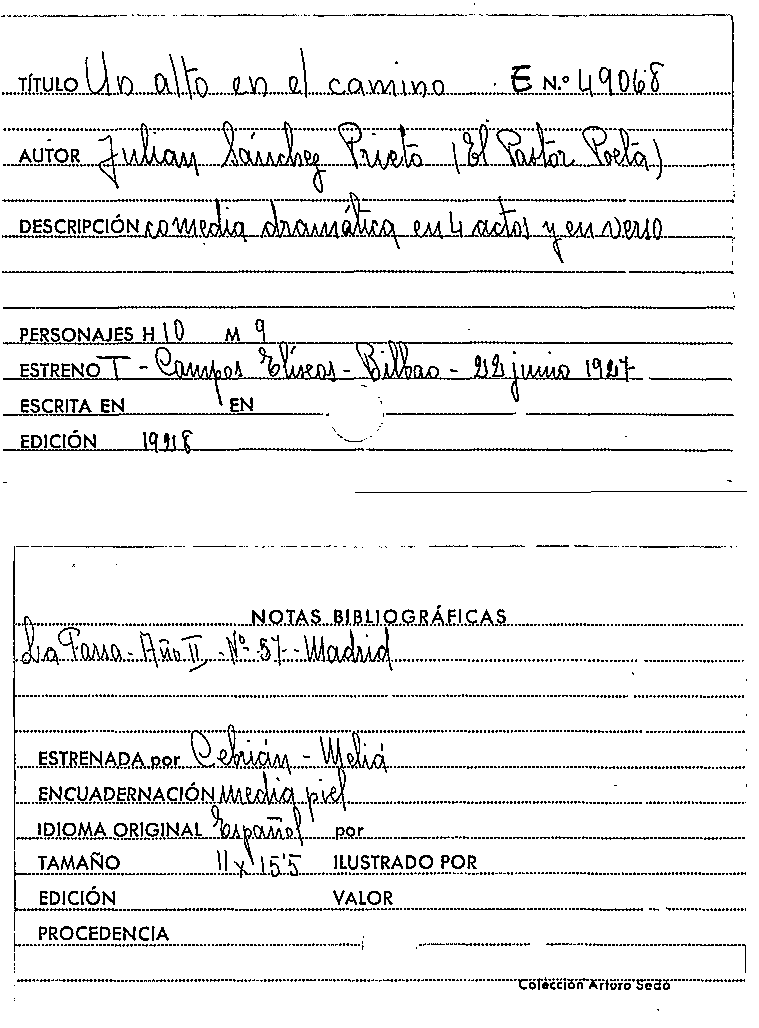 TÍTULO Un alto en el camino E N.º 49068
AUTOR Julian Sánchez Prieto (El Pastor Poeta)
DESCRIPCIÓN comedia dramática en 4 actos y en verso
PERSONAJES H 10 M 9
ESTRENO T - Campos Elíseos - Bilbao - 22 junio 1927
ESCRITA EN EN
EDICIÓN 1928
NOTAS BIBLIOGRÁFICAS
La Farsa - Año II - Nº 57 - Madrid
ESTRENADA por Cebrián - Meliá
ENCUADERNACIÓN media piel
IDIOMA ORIGINAL Español por
TAMAÑO 11 x 15'5 ILUSTRADO POR
EDICIÓN VALOR
PROCEDENCIA
Colección Arturo Sedó